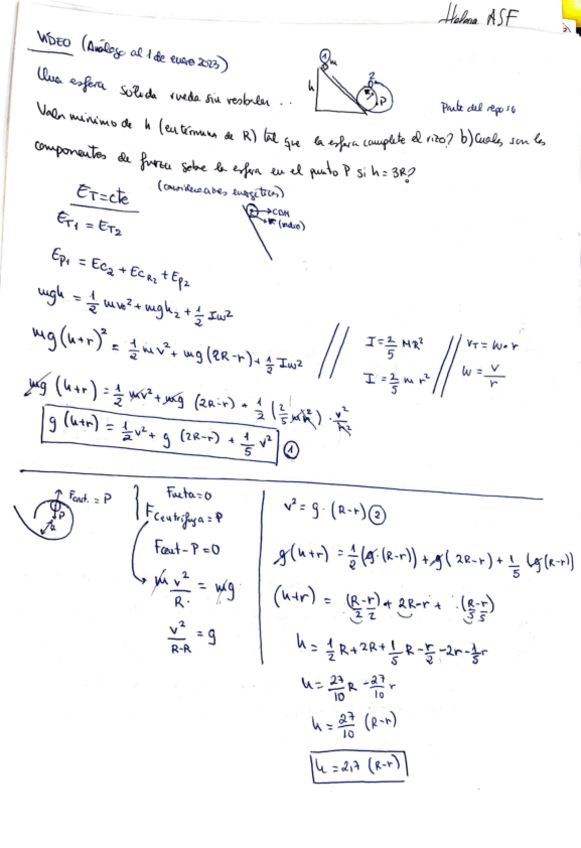 Halma ASF
VIDEO (Análogo al 1 de enero 2023)
Una esfera solida rueda sin resbalar...
1 m
h
2
R
P
Parte del repo 16
Valor mínimo de h (en términos de R) tal que la esfera complete el rizo? b) Cuales son los
componentes de fuerza sobre la esfera en el punto P si h=3R?
(consideraciones energéticas)
E_T = cte
CDM
r (radio)
E_T1 = E_T2
E_p1 = E_c2 + E_cR2 + E_p2
mgh = 1/2 mv² + mgh_2 + 1/2 Iw²
mg(h+r)² = 1/2 mv² + mg(2R-r) + 1/2 Iw²
I = 2/5 MR²
I = 2/5 m r²
v_T = w·r
w = v/r
mg(h+r) = 1/2 mv² + mg (2R-r) + 1/2 (2/5 mr²) · v²/r²
g(h+r) = 1/2 v² + g (2R-r) + 1/5 v² 1
F cent. = P
P
R
F neta = 0
F centrífuga = P
F cent - P = 0
m v²/R = mg
v²/R-R = g
v² = g · (R-r) 2
g(h+r) = 1/2 (g·(R-r)) + g(2R-r) + 1/5 (g(R-r))
(h+r) = (R-r)/2 + 2R-r + (R-r)/5
h = 1/2 R + 2R + 1/5 R - r/2 - 2r - 1/5 r
h = 27/10 R - 27/10 r
h = 27/10 (R-r)
h = 2,7 (R-r)